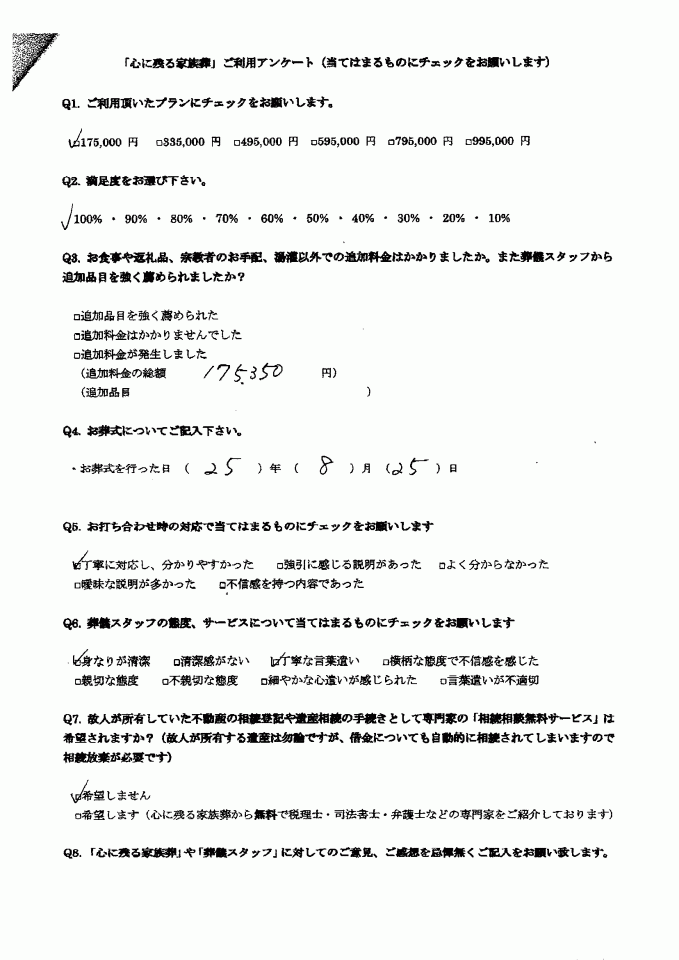 「心に残る家族葬」ご利用アンケート（当てはまるものにチェックをお願いします）
Q1. ご利用頂いたプランにチェックをお願いします。
☑175,000 円 □335,000 円 □495,000 円 □595,000 円 □795,000 円 □995,000 円
Q2. 満足度をお選び下さい。
✓100% ・ 90% ・ 80% ・ 70% ・ 60% ・ 50% ・ 40% ・ 30% ・ 20% ・ 10%
Q3. お食事や返礼品、宗教者のお手配、湯灌以外での追加料金はかかりましたか。また葬儀スタッフから
追加品目を強く薦められましたか？
□追加品目を強く薦められた
□追加料金はかかりませんでした
□追加料金が発生しました
（追加料金の総額 175.350 円）
（追加品目 ）
Q4. お葬式についてご記入下さい。
・お葬式を行った日 （ 25 ）年（ 8 ）月（25 ）日
Q5. お打ち合わせ時の対応で当てはまるものにチェックをお願いします
☑丁寧に対応し、分かりやすかった □強引に感じる説明があった □よく分からなかった
□曖昧な説明が多かった □不信感を持つ内容であった
Q6. 葬儀スタッフの態度、サービスについて当てはまるものにチェックをお願いします
☑身なりが清潔 □清潔感がない ☑丁寧な言葉遣い □横柄な態度で不信感を感じた
□親切な態度 □不親切な態度 □細やかな心遣いが感じられた □言葉遣いが不適切
Q7. 故人が所有していた不動産の相続登記や遺産相続の手続きとして専門家の「相続相談無料サービス」は
希望されますか？（故人が所有する遺産は勿論ですが、借金についても自動的に相続されてしまいますので
相続放棄が必要です）
☑希望しません
□希望します（心に残る家族葬から無料で税理士・司法書士・弁護士などの専門家をご紹介しております）
Q8. 「心に残る家族葬」や「葬儀スタッフ」に対してのご意見、ご感想を忌憚無くご記入をお願い致します。